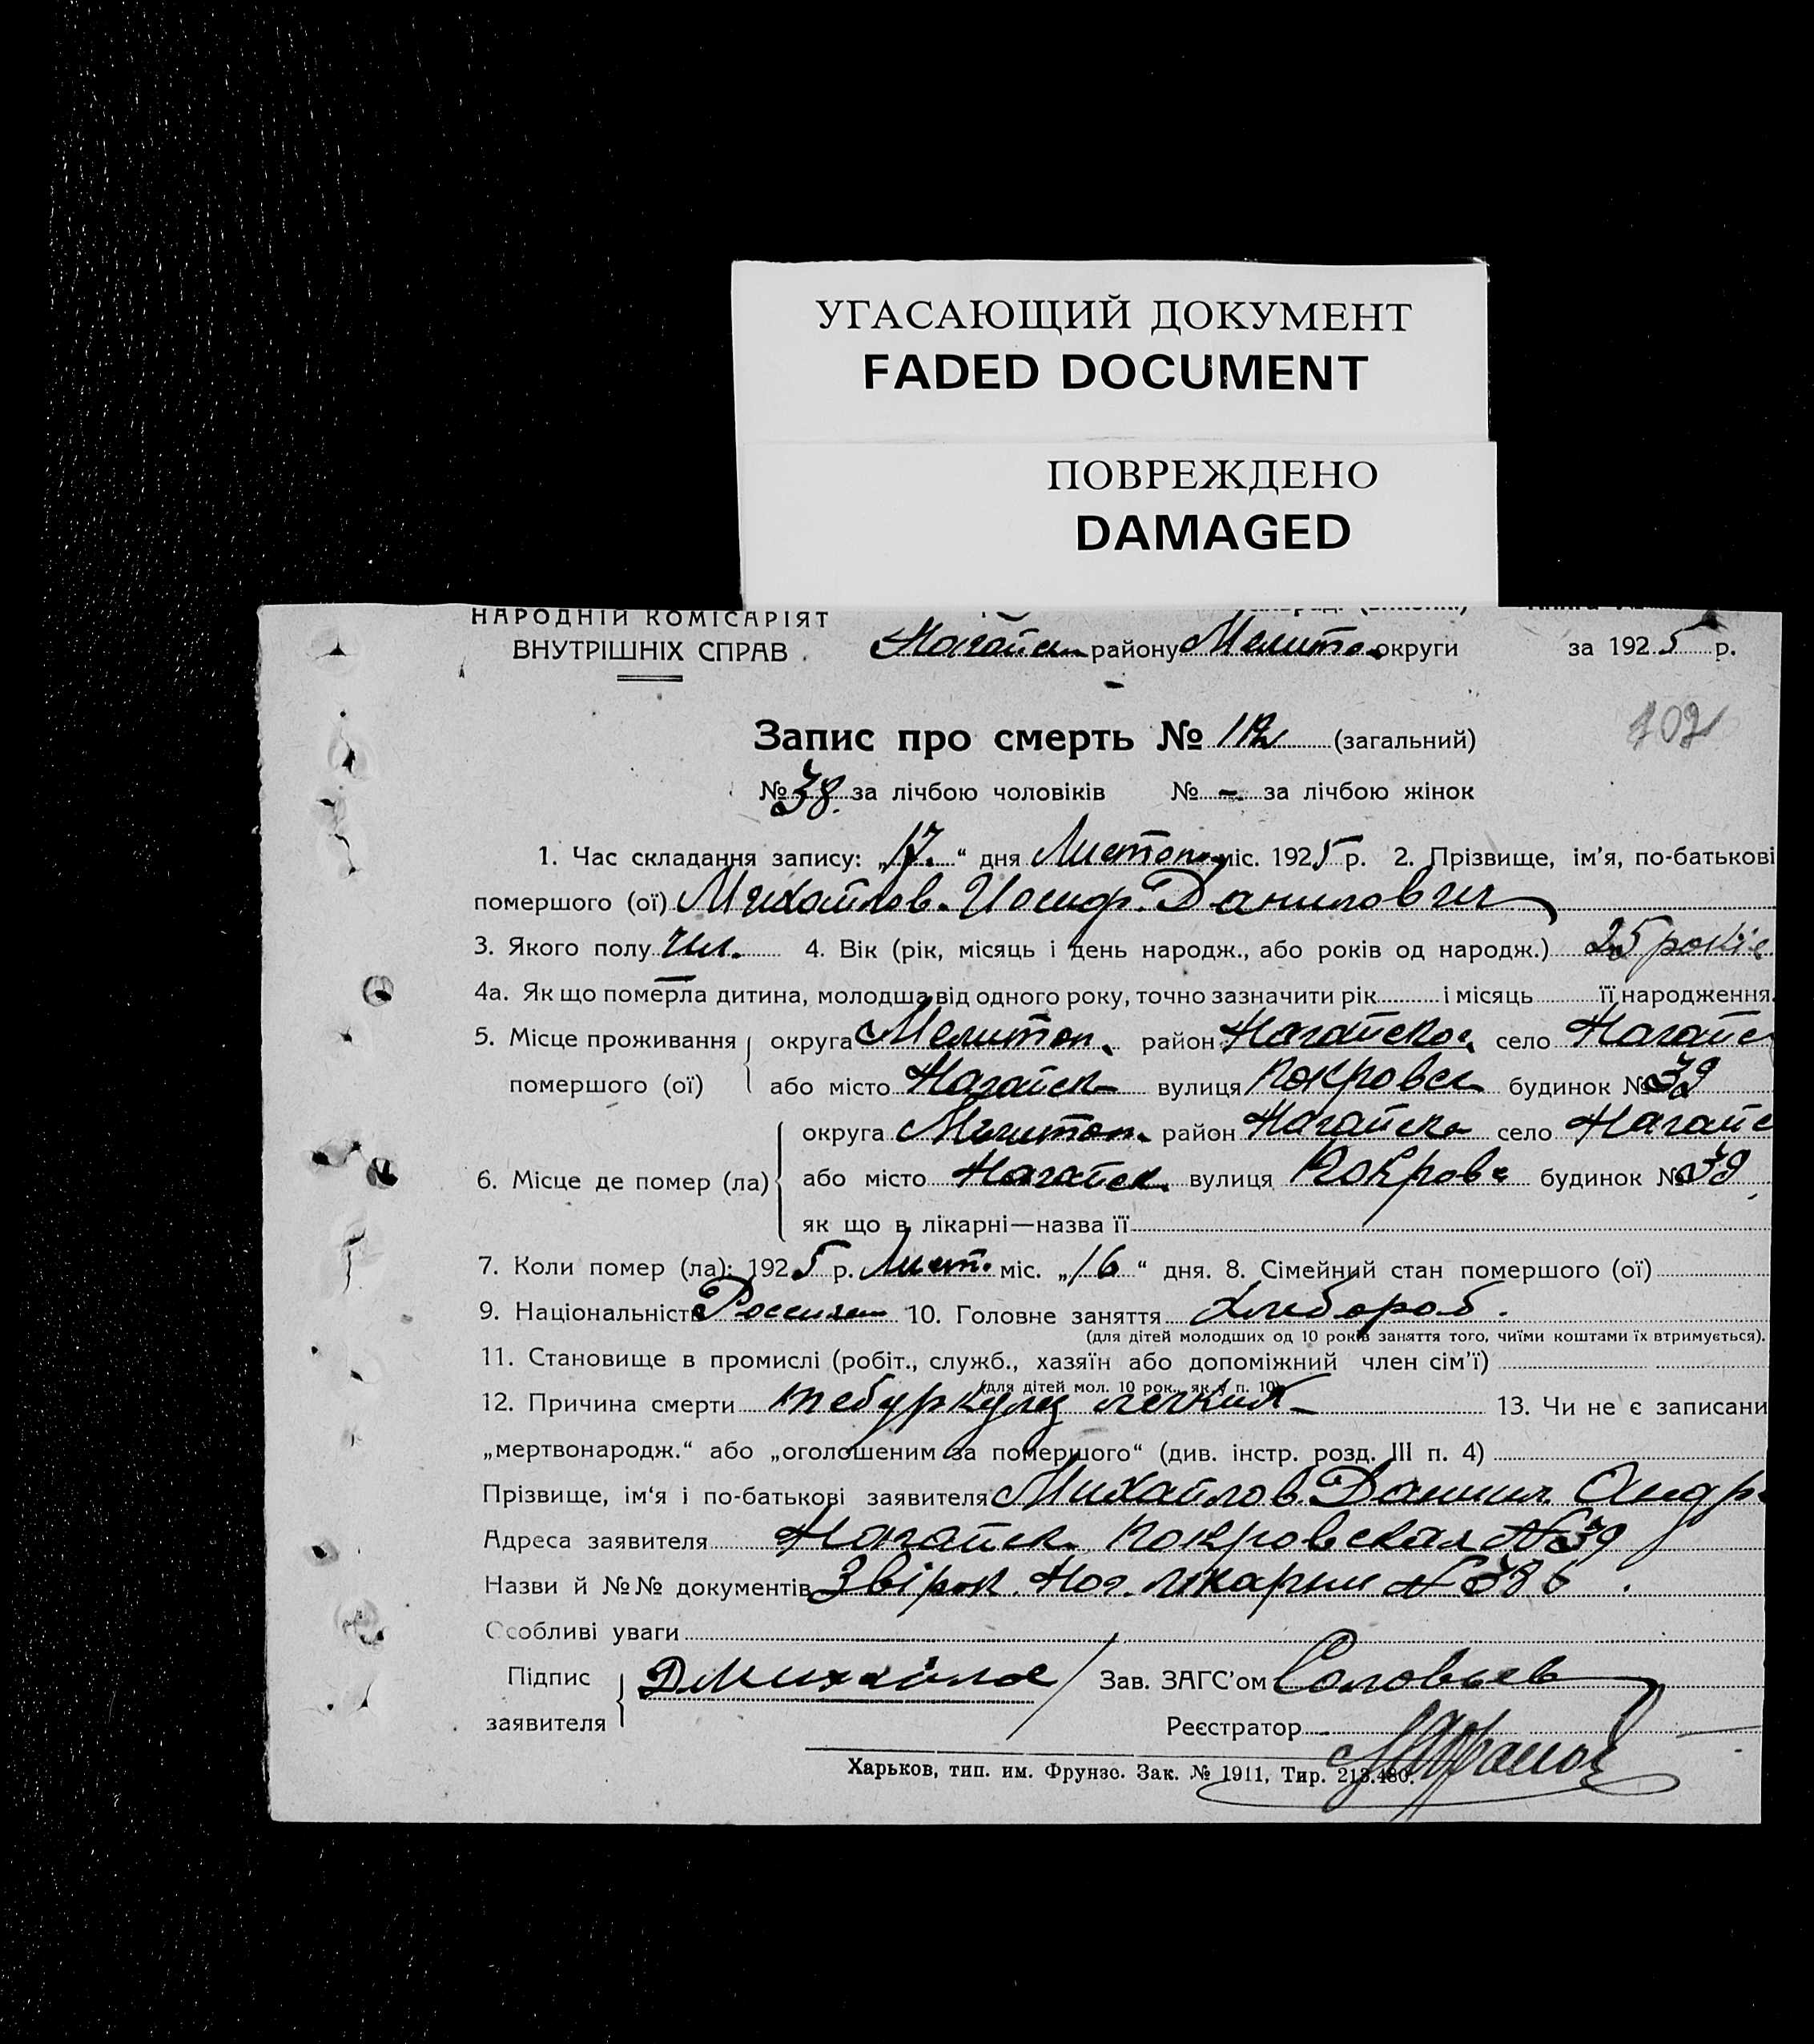 УГАСАЮЩИЙ ДОКУМЕНТ
FADED DOCUMENT
ПОВРЕЖДЕНО
DAMAGED
НАРОДНІЙ КОМІСАРІЯТ
ВНУТРІШНІХ СПРАВ. Ногайськ району Мелитоп округи за 1925 р.
102
Запис про смерть № 112 (загальний)
№ 38 за лічбою чоловіків № - за лічбою жінок
1. Час складання запису: „17.“ дня Листоп. міс. 1925 р. 2. Прізвище, ім’я, по-батькові
помершого (ої) Михайлов. Иосиф. Данилович
3. Якого полу чол. 4. Вік (рік, місяць і день народж., або років од народж.) 25 років
4а. Як що померла дитина, молодша від одного року, точно зазначити рік і місяць її народження.
5. Місце проживання округа Мелитоп. район Ногайськ село Ногайс
помершого (ої) або місто Ногайск вулиця Покровск будинок № 39
округа Мелитоп. район Ногайськ село Ногайс
6. Місце де помер (ла) або місто Ногайск. вулиця Покровс будинок № 39
як що в лікарні—назва її
7. Коли помер (ла): 1925 р. Лист. міс. „16“ дня. 8. Сімейний стан помершого (ої)
9. Національність Россиян 10. Головне заняття Хлибороб.
(для дітей молодших од 10 років заняття того, чиїми коштами їх втримується).
11. Становище в промислі (робіт., служб., хазяїн або допоміжний член сім’ї)
(для дітей мол. 10 рок., як у п. 10)
12. Причина смерти тебуркулез легких 13. Чи не є записани
„мертвонародж.“ або „оголошеним за помершого“ (див. інстр. розд. III п. 4)
Прізвище, ім‘я і по-батькові заявителя Михайлов. Данил. Андр.
Адреса заявителя Ногайск. Покровская № 39
Назви й №№ документів Ног. лікарни № 386.
Особливі уваги
Підпис заявителя Д Михайлов Зав. ЗАГС’ом Соловьев
Реєстратор
Харьков, тип. им. Фрунзе. Зак. № 1911, Тир. 213.480.